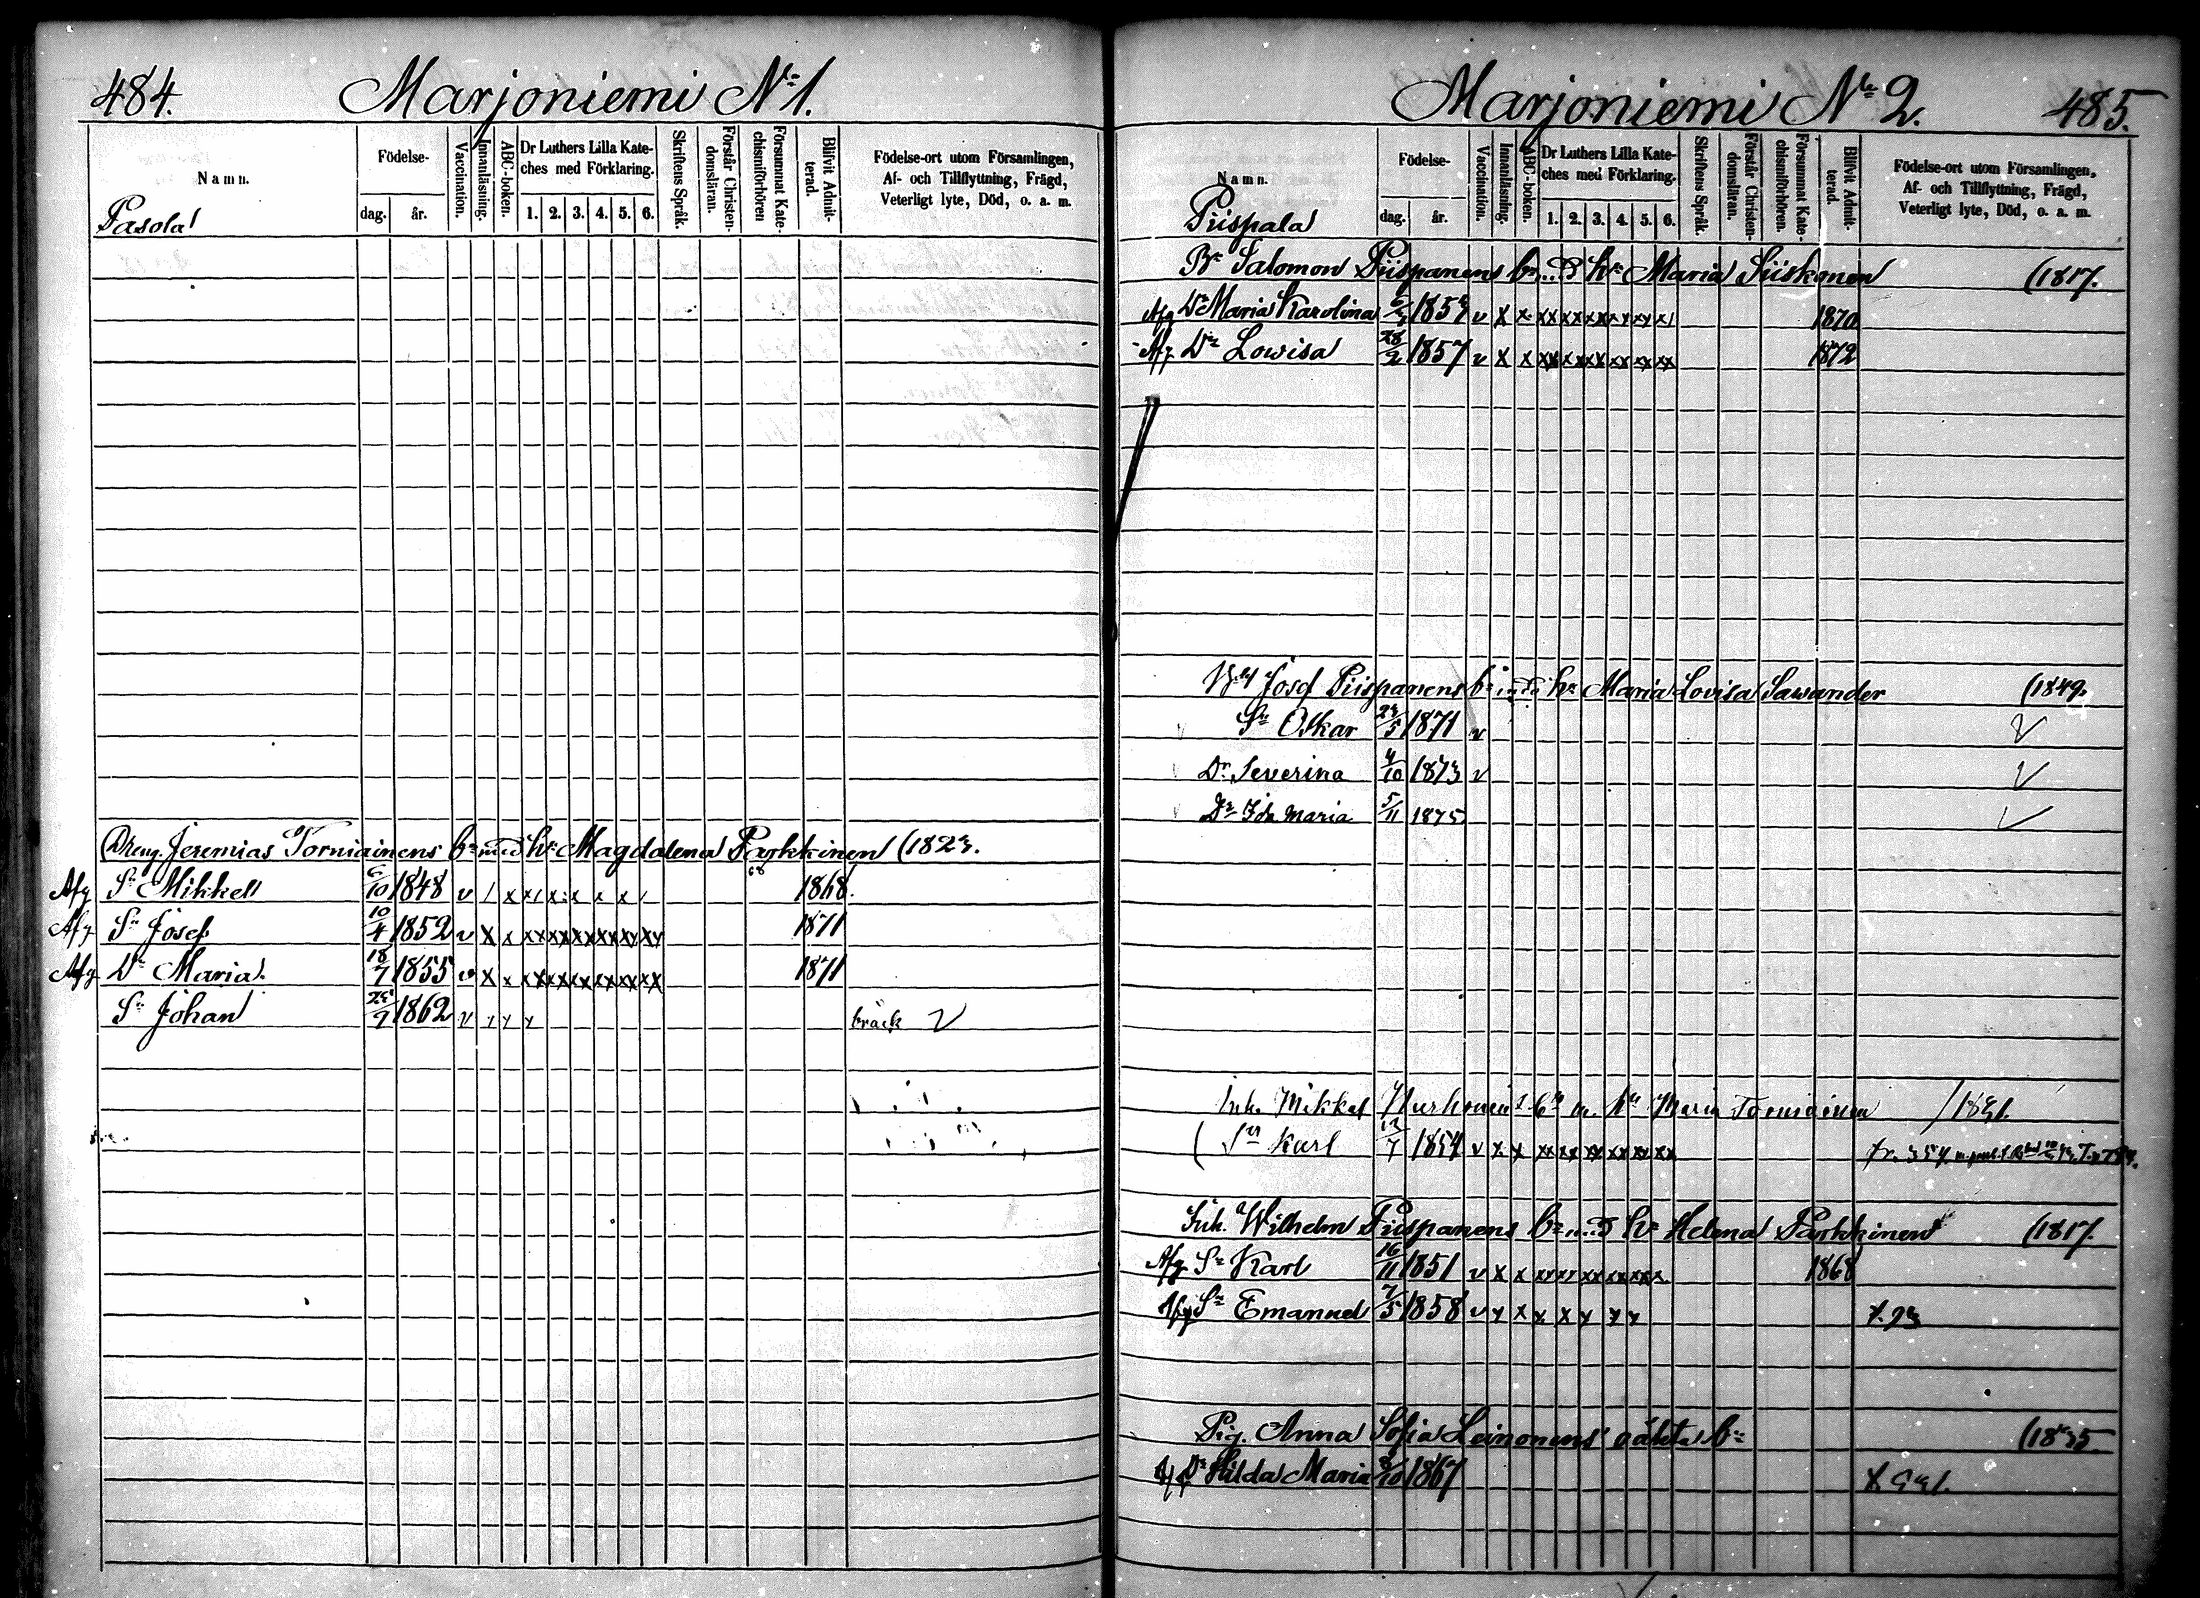 484. Marjoniemi No 1.
Namn.
Födelse-
dag. år.
Vaccination.
Innanläsning.
ABC-boken.
Dr Luthers Lilla Kate-
ches med Förklaring.
1. 2. 3. 4. 5. 6.
Skriftens Språk.
Förstår Christen-
domsläran.
Försummat Kate-
chismiförhören
Blifvit Admit-
terad.
Födelse-ort utom Församlingen,
Af- och Tillflyttning, Frägd,
Veterligt lyte, Död, o. a. m.
Pasola
Dreng. Jeremias Torniainens bn med hu Magdalena Parkkinen (1823.
Afg Sn Mikkell 6/10 1848 v / x x/ x x x x / 68 1868.
Afg Sn Josef 10/4 1852 v X x xx xx xx xx xx xy 1871
Afg Dr Maria. 18/7 1855 v X x xx xx xx xx xx xx 1871
Sn Johan 1862 v y y y bräck V
Marjoniemi No 2. 485.
Namn.
Födelse-
dag. år.
Vaccination.
Innanläsning.
ABC-boken.
Dr Luthers Lilla Kate-
ches med Förklaring.
1. 2. 3. 4. 5. 6.
Skriftens Språk.
Förstår Christen-
domsläran.
Försummat Kate-
chismiförhören.
Blifvit Admit-
terad.
Födelse-ort utom Församlingen,
Af- och Tillflyttning, Frägd,
Veterligt lyte, Död, o. a. m.
Piispala
Bn Salomon Piispanens bn med hu Maria Siiskonen (1817.
Afg Dr Maria Karolina 1853 v X x xx xx xx xy xy x/ 1870
Afg Dr Lowisa 28/2 1857 v x x xx xx xx xx xx xx 1872
Josef Piispanens bn med hu Maria Lovisa Sawander (1849.
Sn Oskar 23/5 1871 v V
Dr Severina 4/10 1873 v V
Dr Ida Maria 5/11 1875 V
Inh. Mikkel Nurhonens bn m hu Maria Torniainen /1831.
( Sn Karl 12/7 1854 v x x xx xx xx xx xx xx
Inh. Wilhelm Piispanens bn med hu Helena Parkkinen (1817.
Afg Sn Karl 16/11 1851 v x x xx xx xx xx xx x 1868
Afg Sn Emanuel 7/5 1858 v y x x x y y y t. 23
Pig. Anna Sofia Leinonens oäkta bn (1835.
Afg Dr Hilda Maria 1867 t. 531.